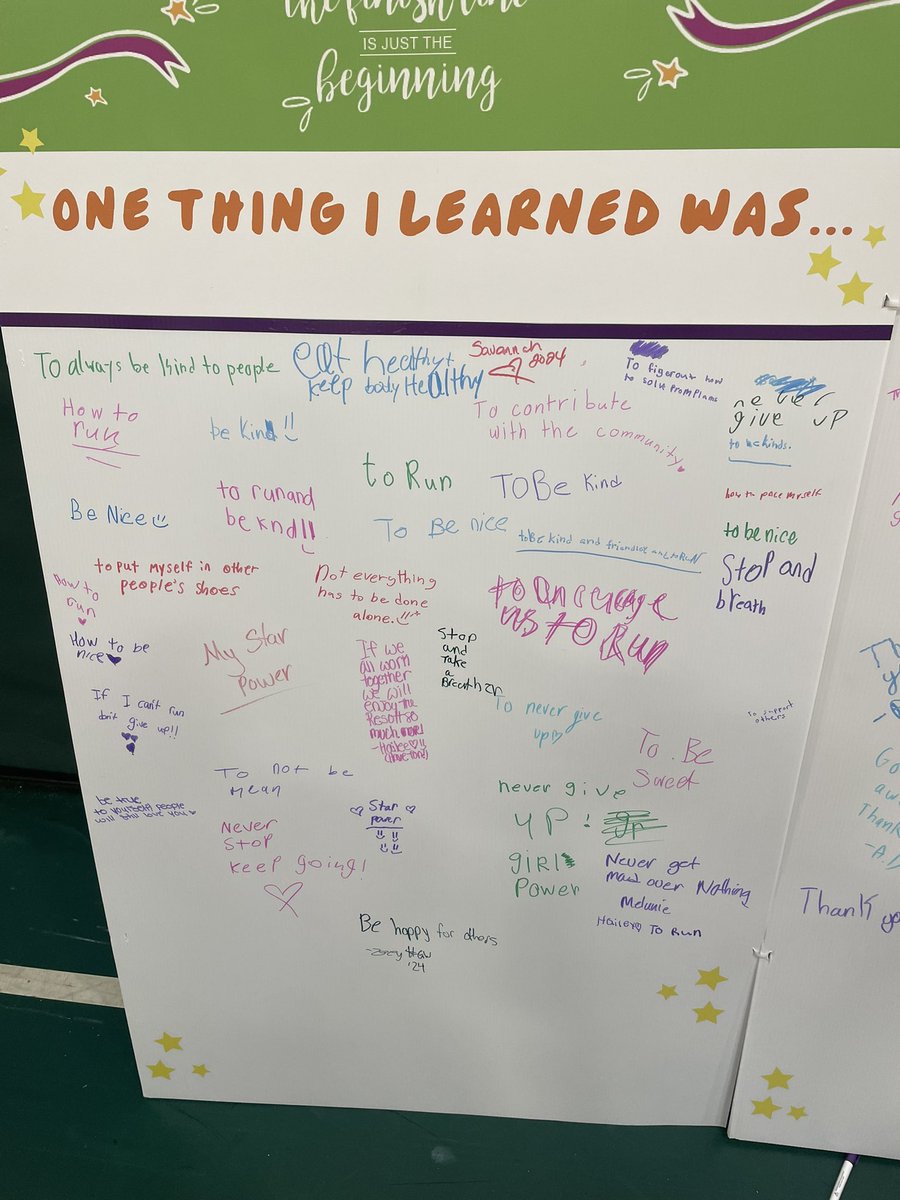 the finish line
IS JUST THE
beginning
ONE THING I LEARNED WAS...
To always be kind to people
eat healthy+
keep body Healthy
Savannah
2024
To figerout how
to solve promplams
never
give up
How to
run
be kind
To contribute
with the community
to be kinds.
to Run
TO Be kind
how to pace myself
Be Nice
to run and
be knd!!
To Be nice
to Be kind and and to RuN
to be nice
Stop and
breath
to put myself in other
people's shoes
How to
run
Not everything
has to be done
alone.
to oncerage
us to Run
How to be
nice
My Star
Power
If we
all worn
together
we will
enjoy the
Result so
much more!
-Hailee
Stop
and
Take
a
Breather
If I can't run
don't give up!!
To never give
up
To support
others
To Be
Sweet
To not be
mean
be true
to yourself people
will still love you
Star
power
never give
UP!
Never
Stop
keep going!
girl
Power
Never get
mad over Nothing
Melanie
Hailey To Run
Be happy for others
'24
Thank
-A.
Thank yo